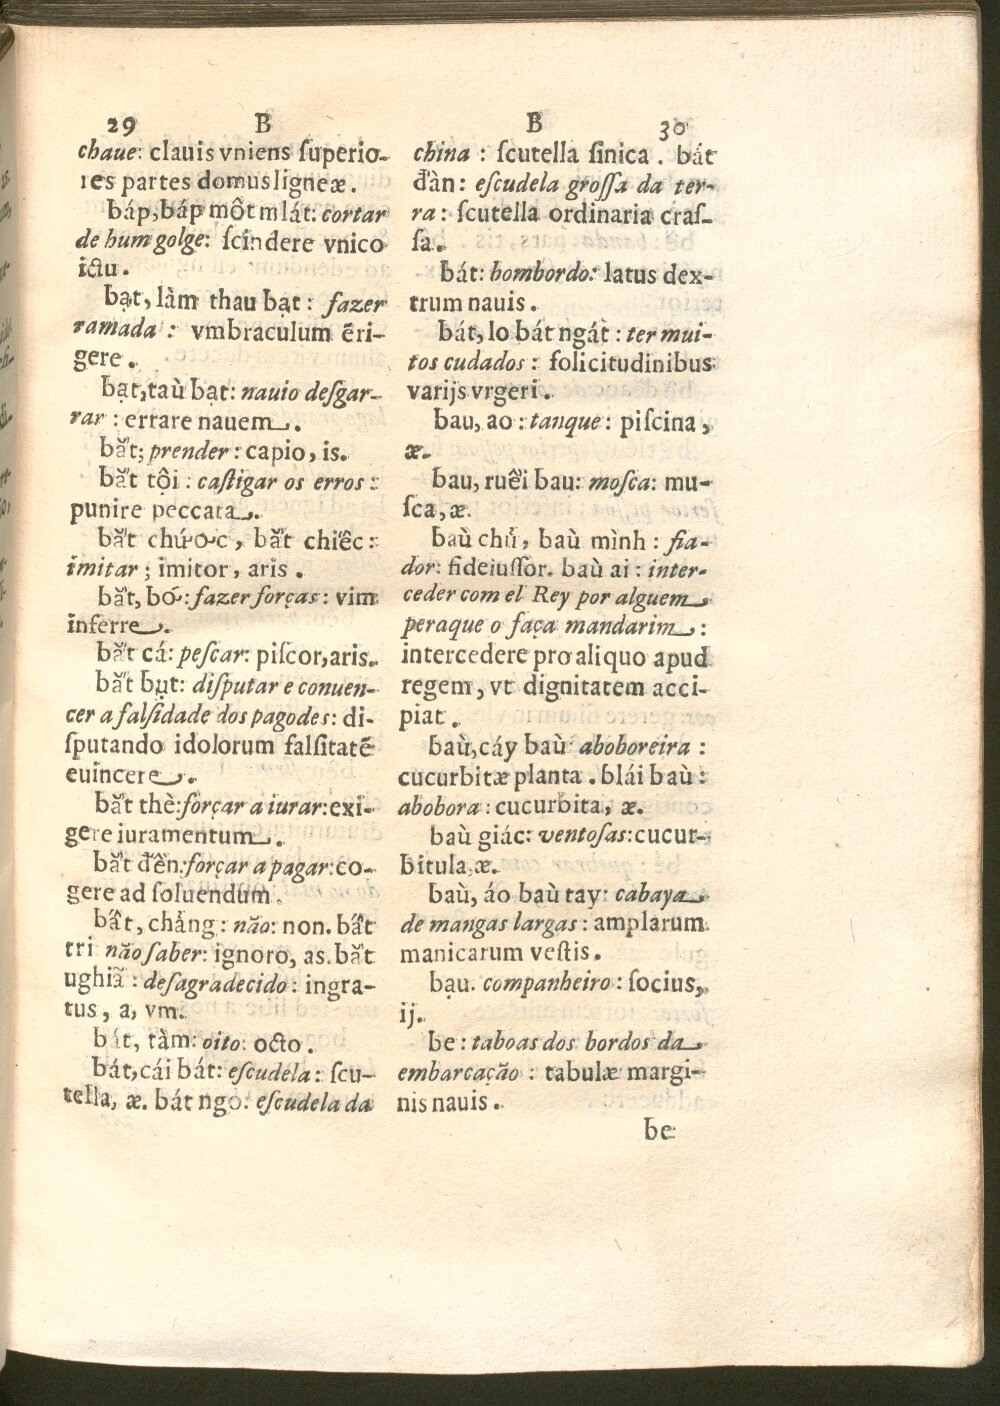 29 B
chaue: clauis vniens ſuperio-
res partes domus ligneæ.
báp, báp môt mlát: cortar
de hum golge: ſcindere vnico
ictu.
bạt, làm thau bạt: fazer
ramada: vmbraculum ẽri-
gere.
bạt, taù bạt: nauio deſgar-
rar: errare nauem.
bắt; prender: capio, is.
bắt tội: caſtigar os erros:
punire peccata.
bắt chước, bắt chiếc:
imitar; imitor, aris.
bắt, bớ: fazer forças: vim
inferre.
bắt cá: peſcar: piſcor, aris.
bắt bụt: diſputar e conuen-
cer a falſidade dos pagodes: di-
ſputando idolorum falſitatẽ
euincere.
bắt thè: forçar a iurar: exi-
gere iuramentum.
bắt đền: forçar a pagar: co-
gere ad ſoluendum.
bất, chẳng: não: non. bất
tri não ſaber: ignoro, as. bất
ughiã: deſagradecido: ingra-
tus, a, vm.
bát, tàm: oito: octo.
bát, cái bát: eſcudela: ſcu-
tella, æ. bát ngo: eſcudela da
B 30
china: ſcutella ſinica. bát
đàn: eſcudela groſſa da ter-
ra: ſcutella ordinaria craſ-
ſa.
bát: bombordo: latus dex-
trum nauis.
bát, lo bát ngát: ter mui-
tos cudados: ſolicitudinibus
varijs vrgeri.
bau, ao: tanque: piſcina,
æ.
bau, ruềi bau: moſca: mu-
ſca, æ.
baù chủ, baù mình: fia-
dor: fideiuſſor. baù ai: inter-
ceder com el Rey por alguem
peraque o faça mandarim:
intercedere pro aliquo apud
regem, vt dignitatem acci-
piat.
baù, cáy baù: aboboreira:
cucurbitæ planta. blái baù:
abobora: cucurbita, æ.
baù giác: ventoſas: cucur-
bitula, æ.
baù, áo baù tay: cabaya
de mangas largas: amplarum
manicarum veſtis.
bạu. companheiro: ſocius,
ij.
be: taboas dos bordos da
embarcação: tabulæ margi-
nis nauis.
be